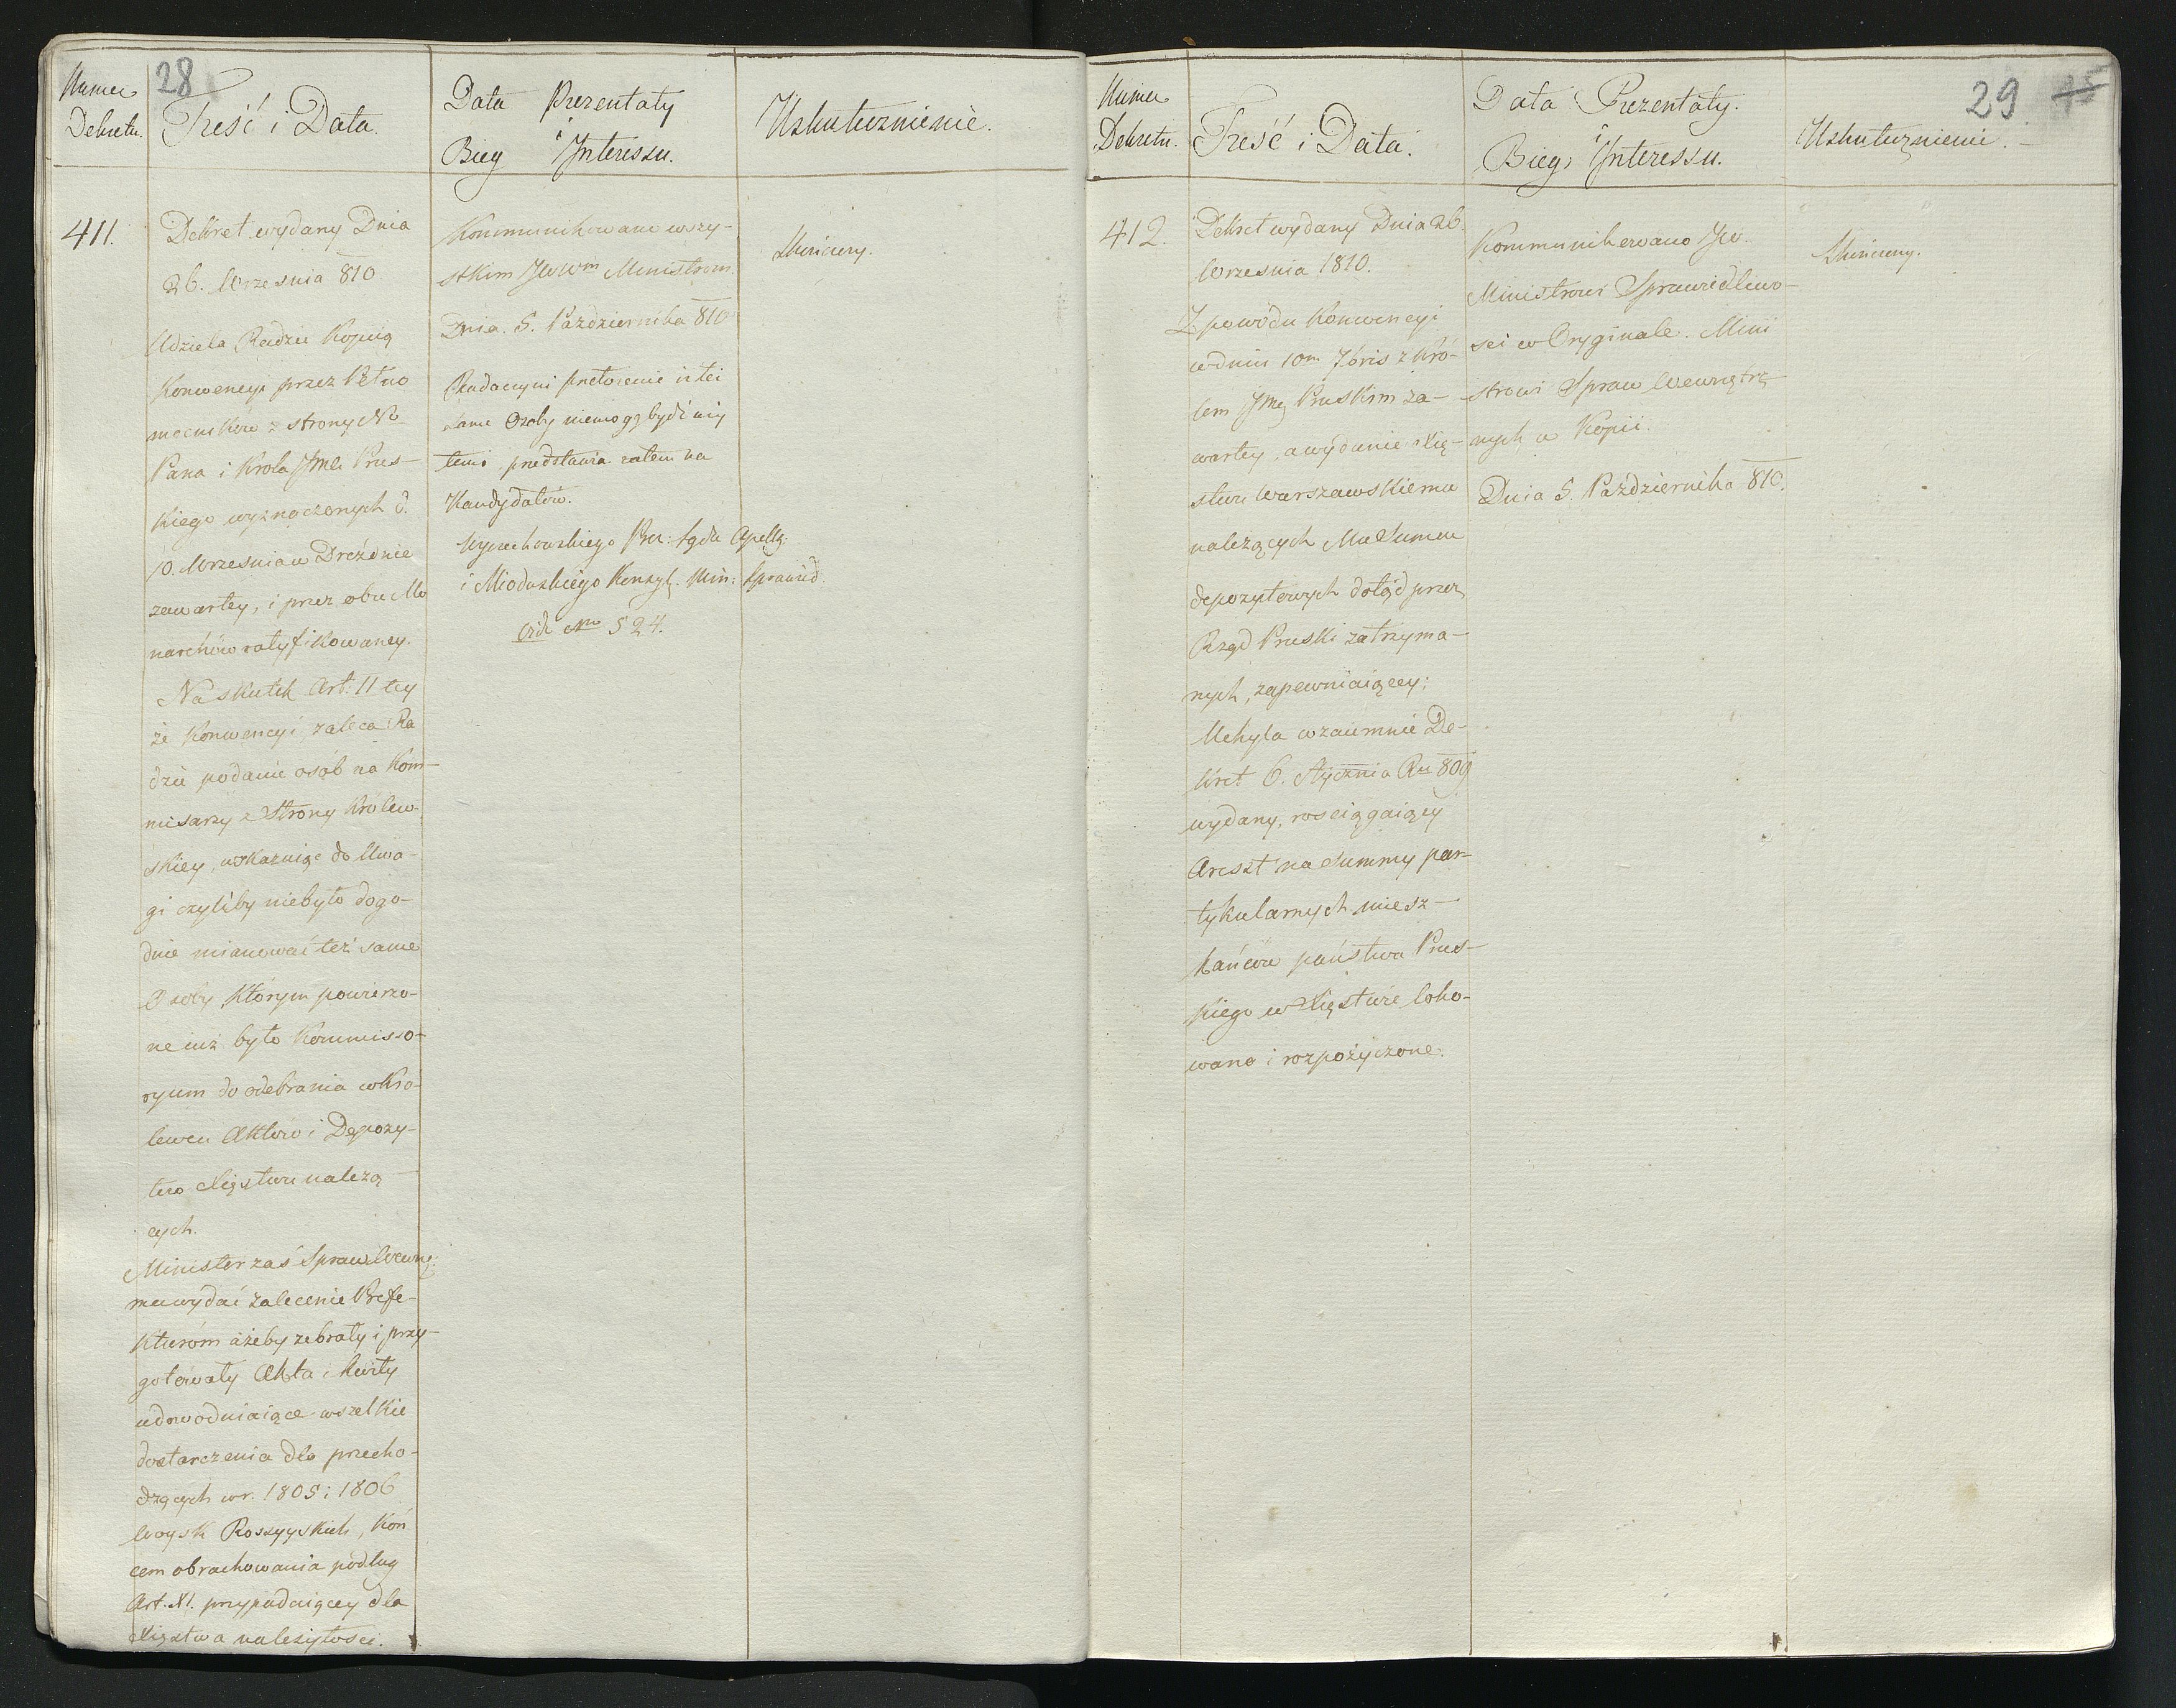 28
Numer
Dekretu.
Treść i Data.
Data Prezentaty
i
Bieg Jnteressu.
Uskutecznienie.
411.
Dekret wydany Dnia
26. Września 810
Udziela Radzie Kopiią
Konwencyi przez Pełno
mocników z strony N.
Pana i Krola Jmci Prus-
kiego wyznaczonych d.
10. Września w Dreźdnie
zawartey, i przez obu Mo
narchów ratyfikowaney.
Na skutek Art: 11 tey
że Konwencyi zaleca Ra
dzie podanie osób na Kom-
misarzy z Strony Królew-
skiey, wskazuiąc do Uwa-
gi czyliby niebyło dogo-
dnie mianować też same
Osoby, którym powierzo-
ne iuż było Kommisso-
ryum do odebrania w Kró-
lewcu Aktów i Depozy-
tów Xięstwu należą-
cych.
Minister zaś Spraw Wewnę:
ma wydać zalecenie Prefe-
kturóm ażeby zebrały i przy-
gotowały Akta i kwity
udowodniaiące wszelkie
dostarczenia dla przecho-
dzących w r. 1805 i 1806
Woysk Rossyyskich, koń
cem obrachowania podług
Art. XI. przypadaiącey dla
Xięstwa należytości.
Kommunikowano wszy-
stkim JWWm Ministrom
Dnia. 5. Pazdziernika 810
Rada czyni przełożenie iż też
same Osoby niemogą bydź
temi przedstawia zatem na
Kandydatów.
Wyczechowskiego Sądu Apella:
i Miaduskiego Konsyl. Min: Sprawied.
vide Nro 524.
Skończony.
29
Numer
Dekretu.
Treść i Data.
Data Prezentaty.
i
Bieg Jnteressu.
Uskutecznienie.
412.
Dekret wydany Dnia 26.
Września 1810.
Z powodu Konwencyi
w dniu 10m 7bris z Kró-
lem Jmcią Pruskim za-
wartey, a wydanie Xię-
stwu Warszawskiemu
należących Mu Summ
depozytowych dotąd przez
Rząd Pruski zatrzyma-
nych, zapewniaiącey;
Uchyla wzaiemnie De-
kret 6. Stycznia Ru 809
wydany, rosciągaiący
Areszt na Summy par-
tykularnych miesz-
kańców państwa Prus-
kiego w Xięstwie loko-
wane i rozpożyczone.
Kommunikowano JW.
Ministrowi Sprawiedliwo-
sci w Oryginale. Mini
strowi Spraw Wewnętrz
nych w Kopii.
Dnia 5. Października 810.
Skończony.